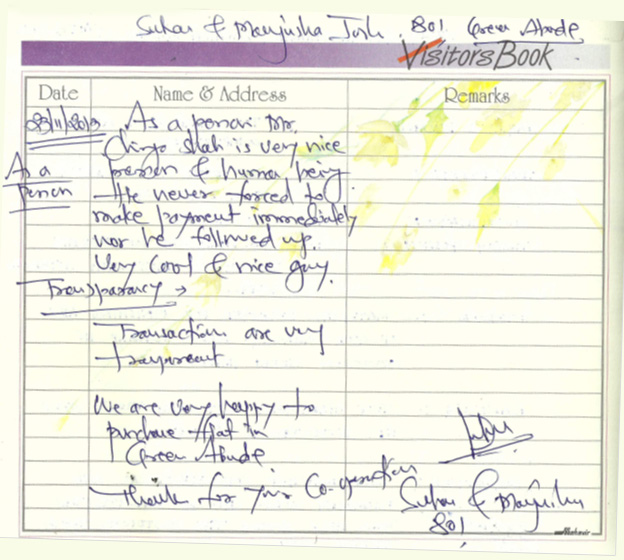 Suhas & Manjusha Joshi 801 Green Abode
Visitors Book
Date Name & Address Remarks
23/11/2013 As a person Mr.
Chirag Shah is very nice
As a person person & human being
He never forced to
make payment immediately
nor he followed up.
Very Cool & nice guy.
Transparancy →
Transaction are very
transparent
We are very happy to
purchase flat in
Green Abode
Thank for your Co-operation
Suhas & Manjusha
801